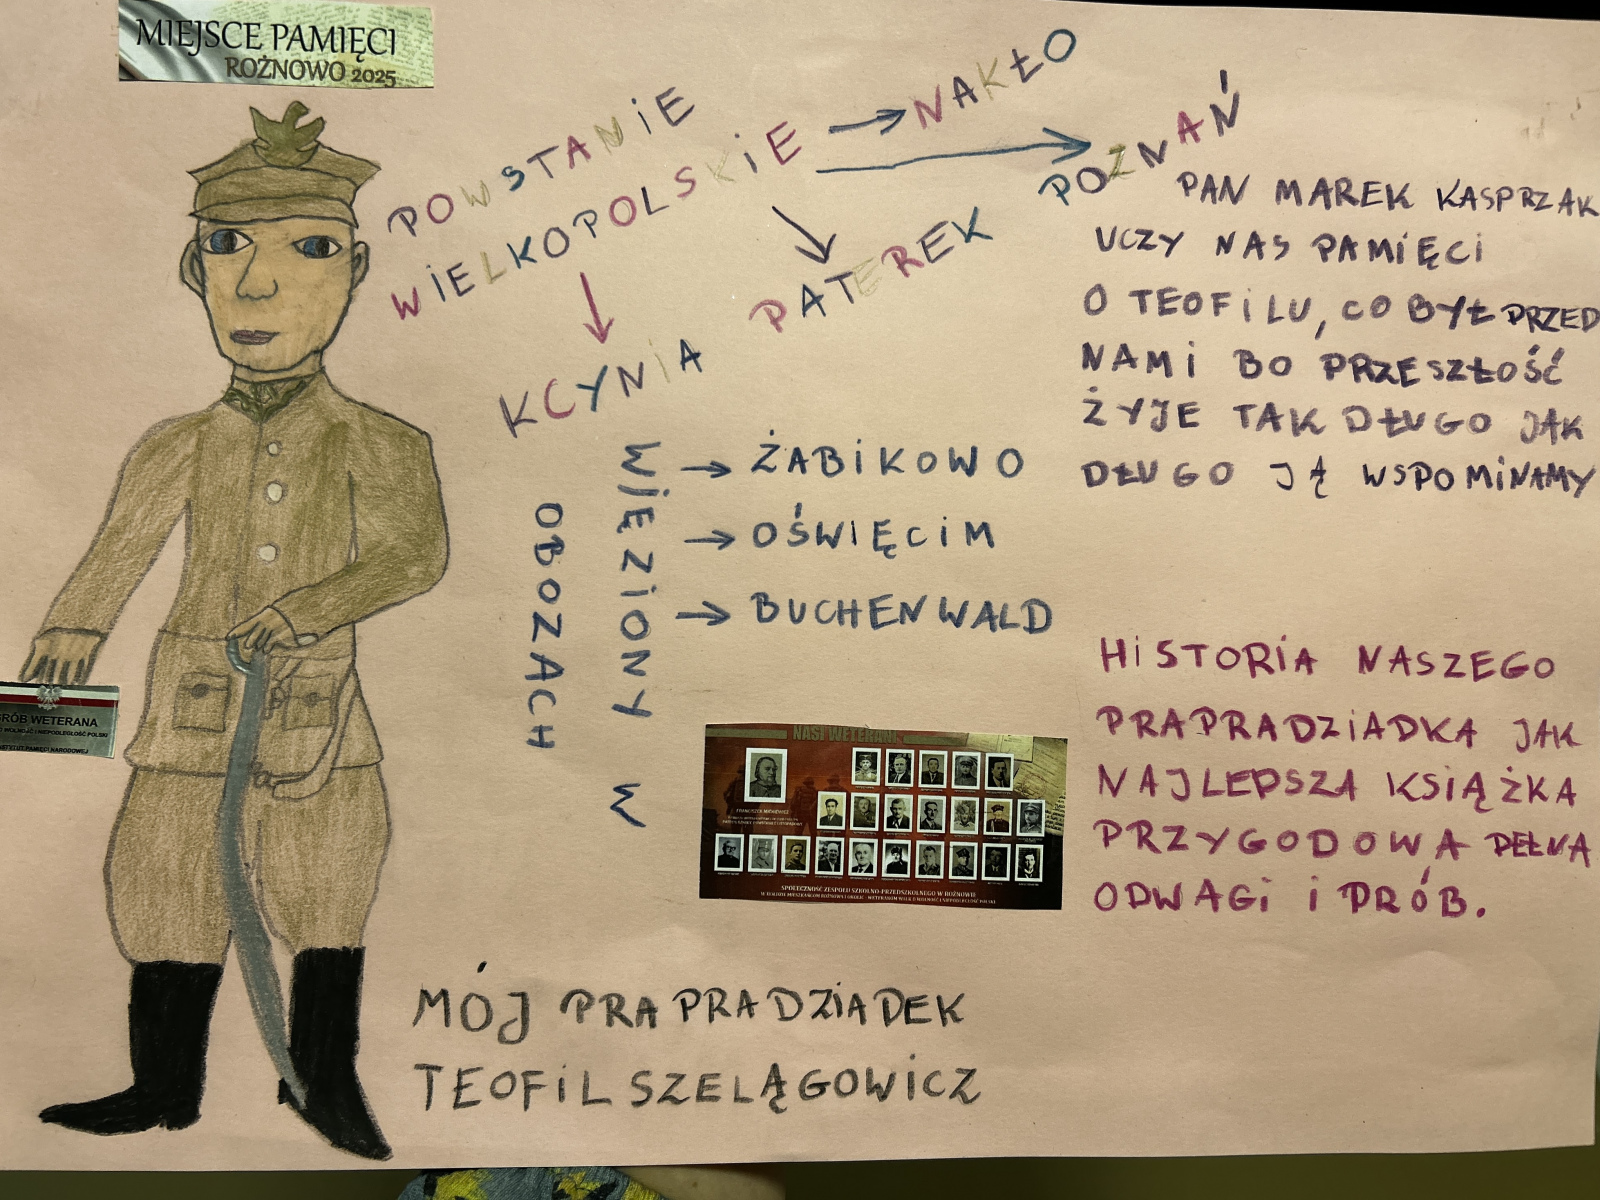 MIEJSCE PAMIĘCI
ROŻNOWO 2025
POWSTANIE
WIELKOPOLSKIE
→ NAKŁO
POZNAŃ
PATEREK
KCYNIA
PAN MAREK KASPRZAK
UCZY NAS PAMIĘCI
O TEOFILU, CO BYŁ PRZED
NAMI BO PRZESZŁOŚĆ
ŻYJE TAK DŁUGO JAK
DŁUGO JĄ WSPOMINAMY
WIĘZIONY W
OBOZACH
→ ŻABIKOWO
→ OŚWIĘCIM
→ BUCHENWALD
GRÓB WETERANA
WOLNOŚĆ I NIEPODLEGŁOŚĆ POLSKI
INSTYTUT PAMIĘCI NARODOWEJ
NASI WETERANI
SPOŁECZNOŚĆ ZESPOŁU SZKOLNO-PRZEDSZKOLNEGO W ROŻNOWIE
HISTORIA NASZEGO
PRAPRADZIADKA JAK
NAJLEPSZA KSIĄŻKA
PRZYGODOWA PEŁNA
ODWAGI I PRÓB.
MÓJ PRAPRADZIADEK
TEOFIL SZELĄGOWICZ